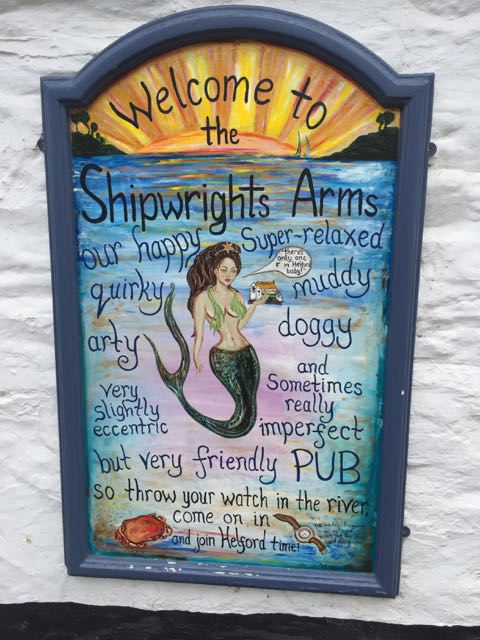 Welcome to
the
Shipwrights Arms
our happy Super-relaxed
there's
only one
& in Helford
baby!
quirky muddy
arty doggy
very
slightly
eccentric
and
Sometimes
really
imperfect
but very friendly PUB
so throw your watch in the river,
come on in
and join Helford time!